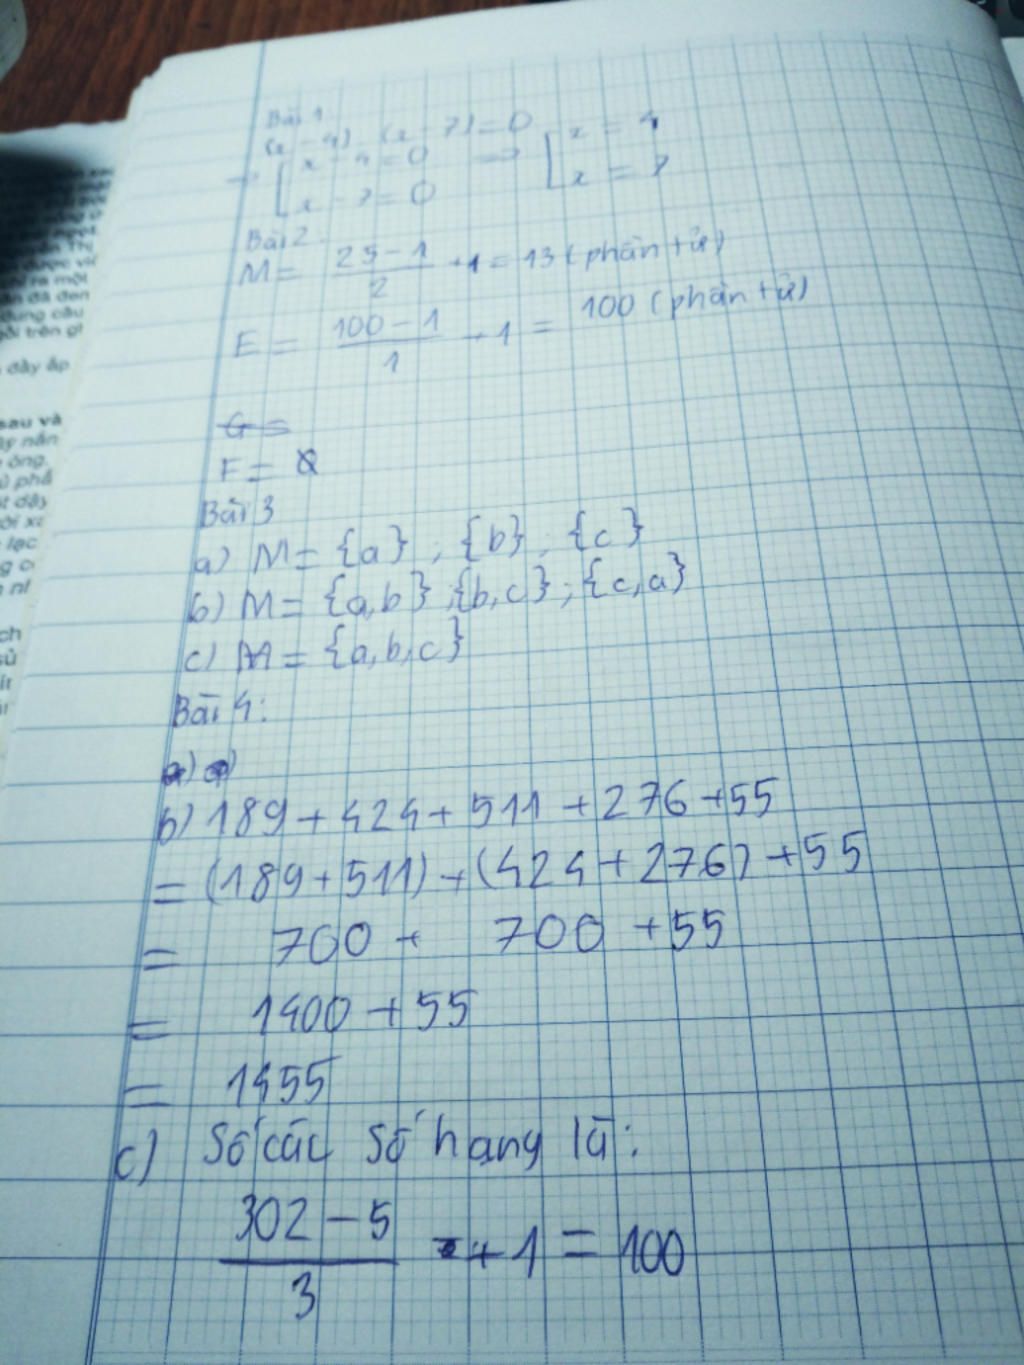 Bài 1:
(x - 4) . (x - 7) = 0
=> [ x - 4 = 0 => [ x = 4
x - 7 = 0 x = 7
Bài 2:
M = \frac{25 - 1}{2} + 1 = 13 (phần tử)
E = \frac{100 - 1}{1} + 1 = 100 (phần tử)
F = Ø
Bài 3
a) M = {a} ; {b} ; {c}
b) M = {a,b} ; {b,c} ; {c,a}
c) M = {a,b,c}
Bài 4:
b) 189 + 424 + 511 + 276 + 55
= (189 + 511) + (424 + 276) + 55
= 700 + 700 + 55
= 1400 + 55
= 1455
c) Số các số hạng là:
\frac{302 - 5}{3} + 1 = 100
đầy ắp
sau và